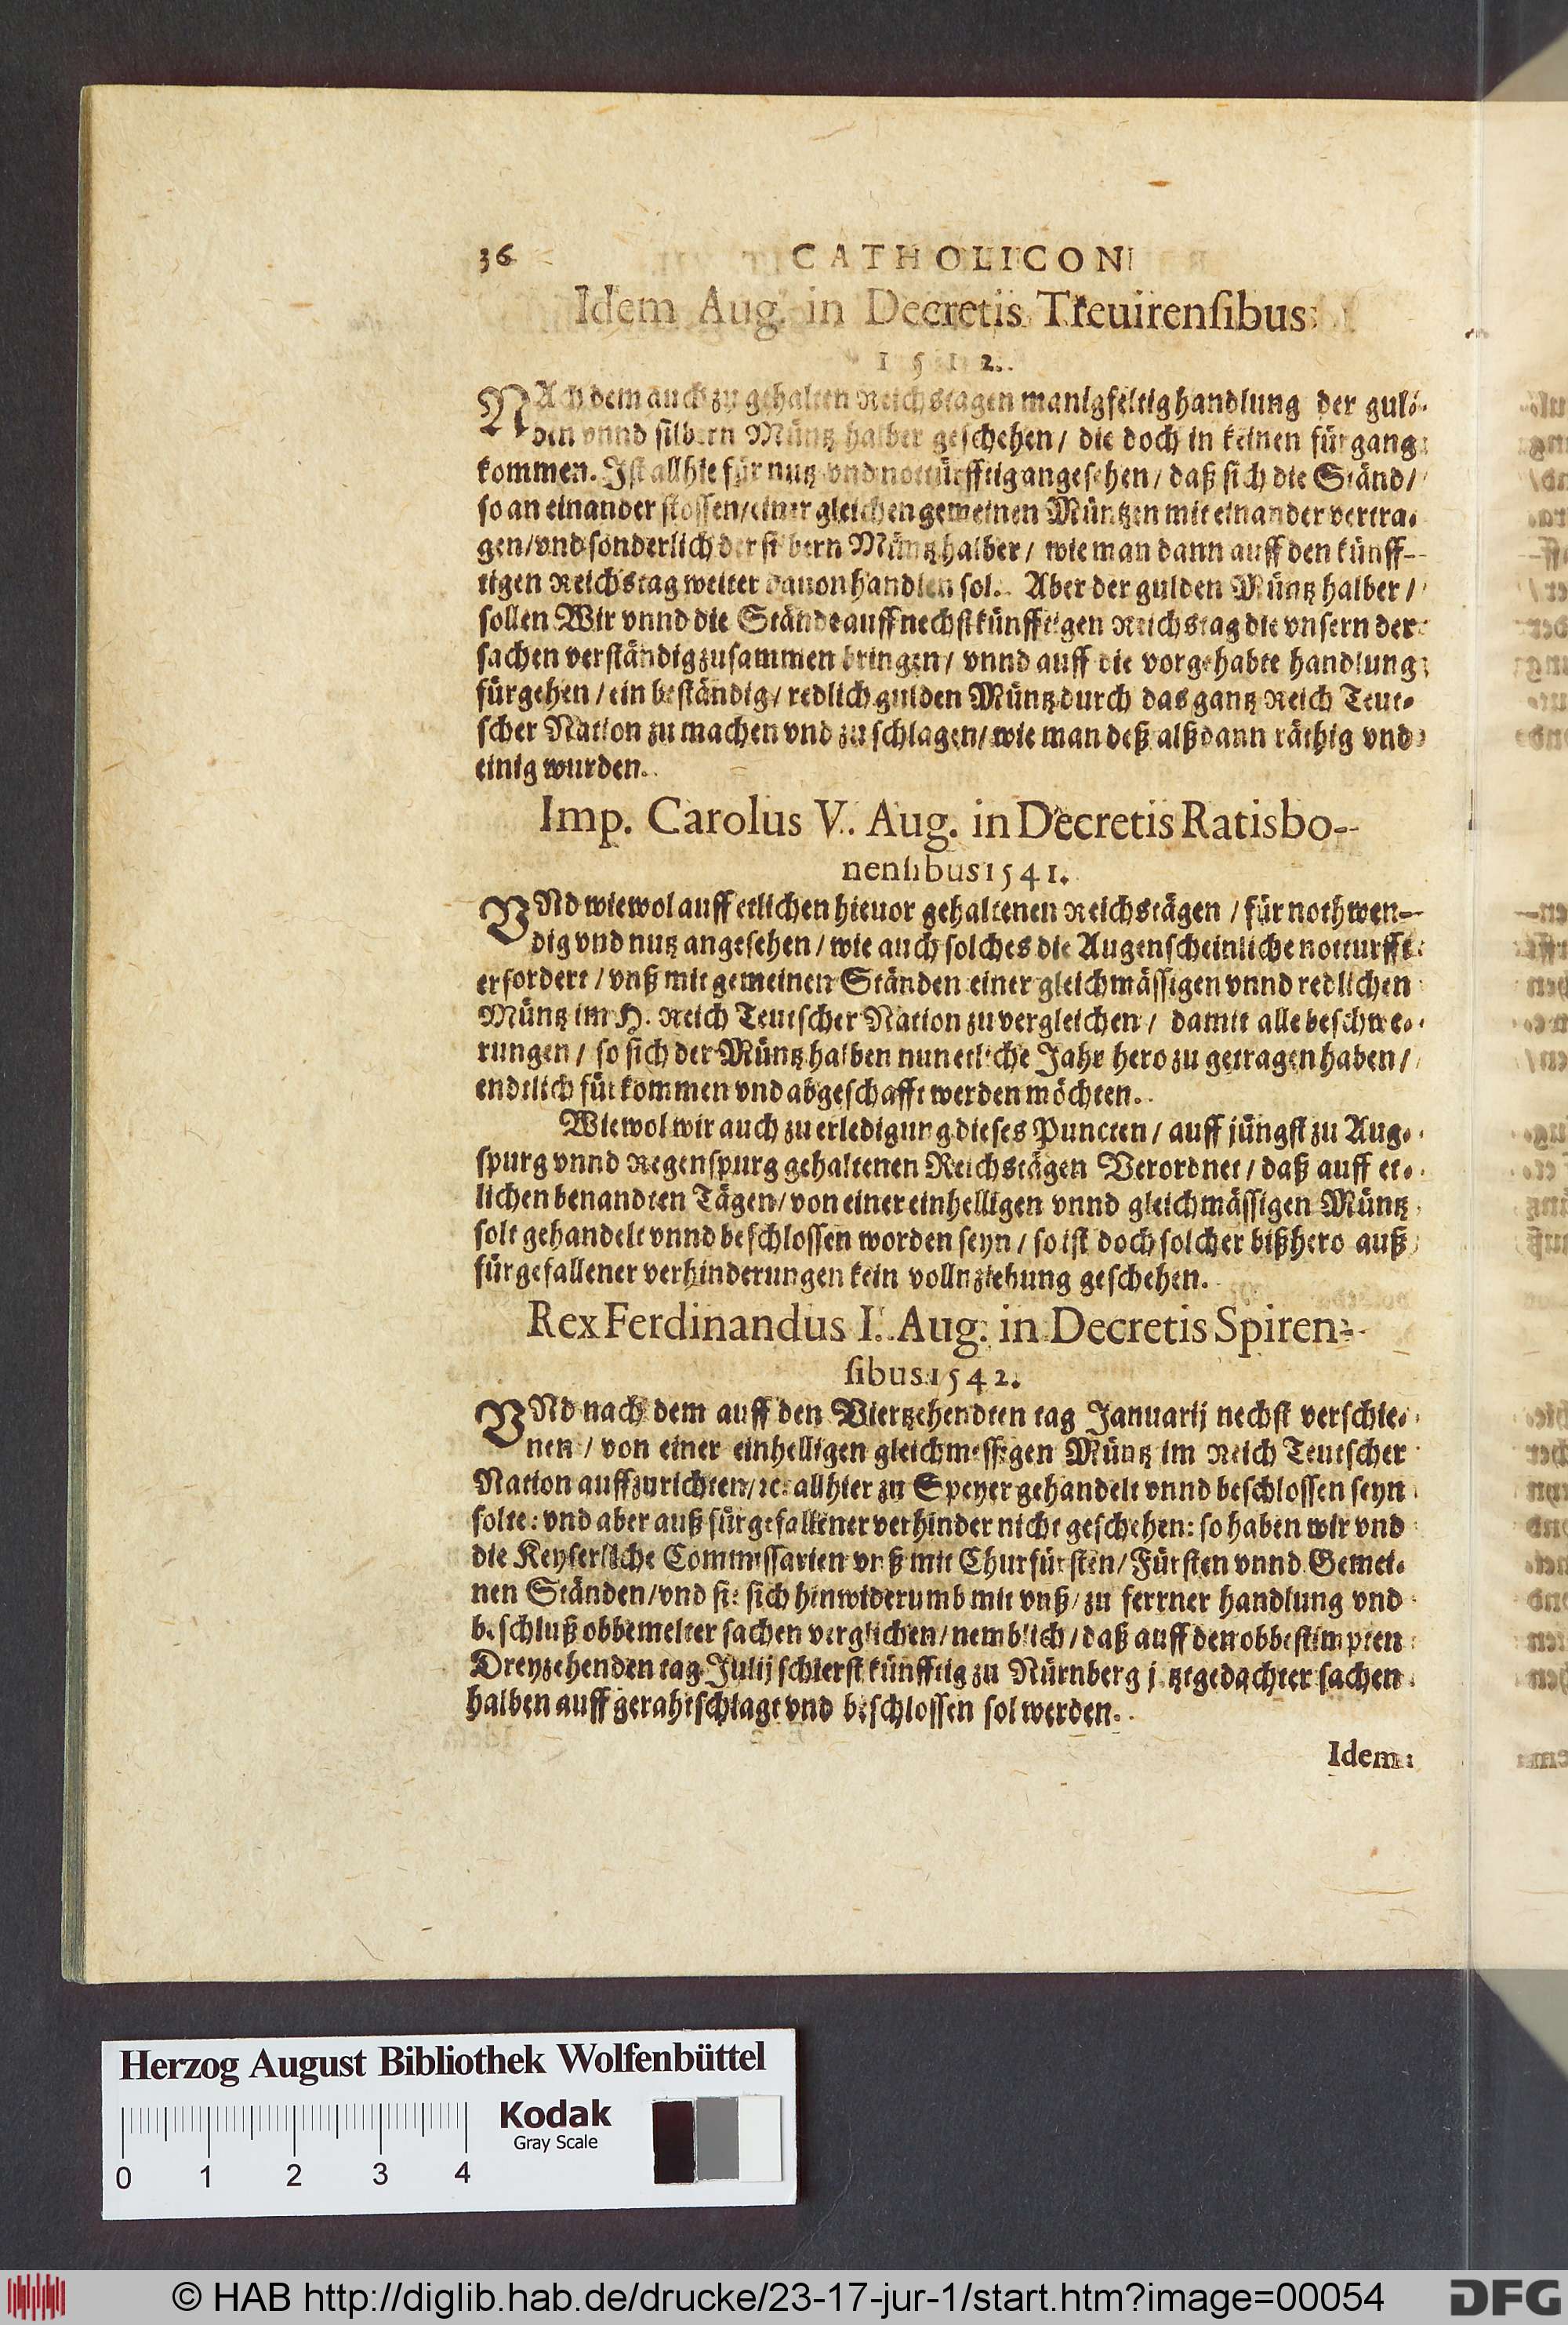 36 CATHOLICON
Idem Aug. in Decretis Treuirenſibus
1512.
NAch dem auch zu gehalten Reichstagen manigfeltig handlung der gul-
den vnnd ſilbern Müntz halber geſchehen / die doch in keinen fürgang
kommen. Iſt allhie für nutz vnd notturfftig angeſehen / daß ſich die Ständ /
ſo an einander ſtoſſen / einer gleichen gemeinen Müntzen mit einander vertra-
gen / vnd ſonderlich der ſilbern Müntz halber / wie man dann auff den künff-
tigen Reichstag weiter dauon handlen ſol. Aber der gulden Müntz halber /
ſollen Wir vnnd die Stände auff nechſtkünfftigen Reichstag die vnſern der
ſachen verſtändig zuſammen bringen / vnnd auff die vorgehabte handlung
fürgehen / ein beſtändig / redlich gulden Müntz durch das gantz Reich Teut-
ſcher Nation zu machen vnd zu ſchlagen / wie man deß alßdann räthig vnd
einig wurden.
Imp. Carolus V. Aug. in Decretis Ratisbo-
nenſibus 1541.
VNd wiewol auff etlichen hieuor gehaltenen Reichstägen / für nothwen-
dig vnd nutz angeſehen / wie auch ſolches die Augenſcheinliche notturfft
erfordert / vnß mit gemeinen Ständen einer gleichmäſſigen vnnd redlichen
Müntz im H. Reich Teutſcher Nation zu vergleichen / damit alle beſchwe-
rungen / ſo ſich der Müntz halben nun etliche Jahr hero zu getragen haben /
endtlich fürkommen vnd abgeſchafft werden möchten.
Wiewol wir auch zu erledigung dieſes Puncten / auff jüngſt zu Aug-
ſpurg vnnd Regenſpurg gehaltenen Reichstägen Verordnet / daß auff et-
lichen benandten Tägen / von einer einhelligen vnnd gleichmäſſigen Müntz
ſolt gehandelt vnnd beſchloſſen worden ſeyn / ſo iſt doch ſolcher bißhero auß
fürgefallener verhinderungen kein vollnziehung geſchehen.
Rex Ferdinandus I. Aug. in Decretis Spiren-
ſibus 1542.
VNd nach dem auff den Viertzehendten tag Januarij nechſt verſchie-
nen / von einer einhelligen gleichmeſſigen Müntz im Reich Teutſcher
Nation auffzurichten / ꝛc. allhier zu Speyer gehandelt vnnd beſchloſſen ſeyn
ſolte: vnd aber auß fürgefallener verhinder nicht geſchehen: ſo haben wir vnd
die Keyſerliche Commiſſarien vnß mit Churfürſten / Fürſten vnnd Gemei-
nen Ständen / vnd ſie ſich hinwiderumb mit vnß / zu ferrner handlung vnd
beſchluß obbemelter ſachen verglichen / nemblich / daß auff den obbeſtimpten
Dreyzehenden tag Julij ſchierſt künfftig zu Nürnberg jetztgedachter ſachen
halben auff gerahtſchlagt vnd beſchloſſen ſol werden.
Idem
Herzog August Bibliothek Wolfenbüttel
Kodak
Gray Scale
0 1 2 3 4
© HAB http://diglib.hab.de/drucke/23-17-jur-1/start.htm?image=00054
DFG